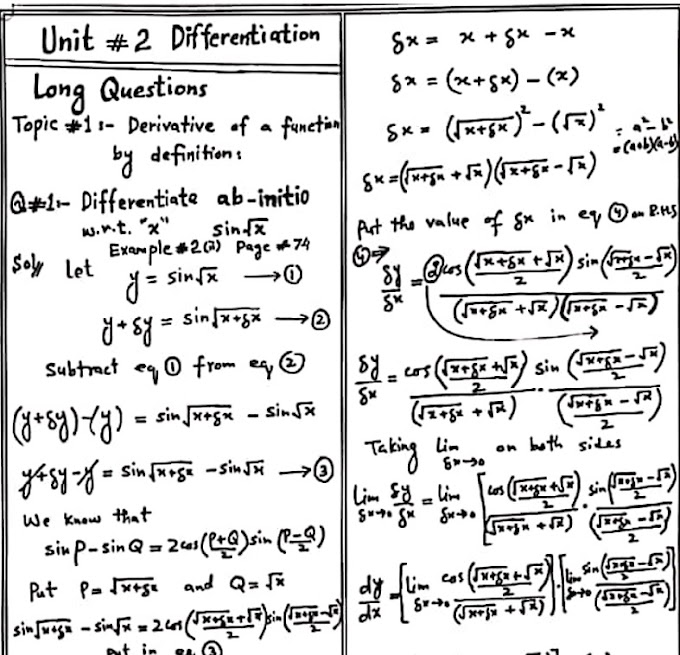 Unit # 2 Differentiation
Long Questions
Topic #1:- Derivative of a function
by definition:
Q#1:- Differentiate ab-initio
w.r.t. "x" sin√x
Example #2(ii) Page #74
Sol/ Let y = sin√x ⟶ ①
y+δy = sin√(x+δx) ⟶ ②
Subtract eq ① from eq ②
(y+δy)-(y) = sin√(x+δx) - sin√x
y+δy-y = sin√(x+δx) - sin√x ⟶ ③
We know that
sinP - sinQ = 2cos((P+Q)/2) sin((P-Q)/2)
Put P = √(x+δx) and Q = √x
sin√(x+δx) - sin√x = 2cos((√(x+δx)+√x)/2) sin((√(x+δx)-√x)/2)
Put in eq ③
δx = x + δx - x
δx = (x+δx) - (x)
δx = (√(x+δx))² - (√x)² ∵ a²-b²
=(a+b)(a-b)
δx = (√(x+δx) + √x)(√(x+δx) - √x)
Put the value of δx in eq ④ on R.H.S
④ ⇒
δy/δx = 2cos((√(x+δx)+√x)/2) sin((√(x+δx)-√x)/2) / (√(x+δx)+√x)(√(x+δx)-√x)
δy/δx = cos((√(x+δx)+√x)/2) / (√(x+δx)+√x) · sin((√(x+δx)-√x)/2) / ((√(x+δx)-√x)/2)
Taking Lim δx→0 on both sides
Lim δx→0 δy/δx = Lim δx→0 [cos((√(x+δx)+√x)/2) / (√(x+δx)+√x) · sin((√(x+δx)-√x)/2) / ((√(x+δx)-√x)/2)]
dy/dx = [Lim δx→0 cos((√(x+δx)+√x)/2) / (√(x+δx)+√x)] · [Lim δx→0 sin((√(x+δx)-√x)/2) / ((√(x+δx)-√x)/2)]